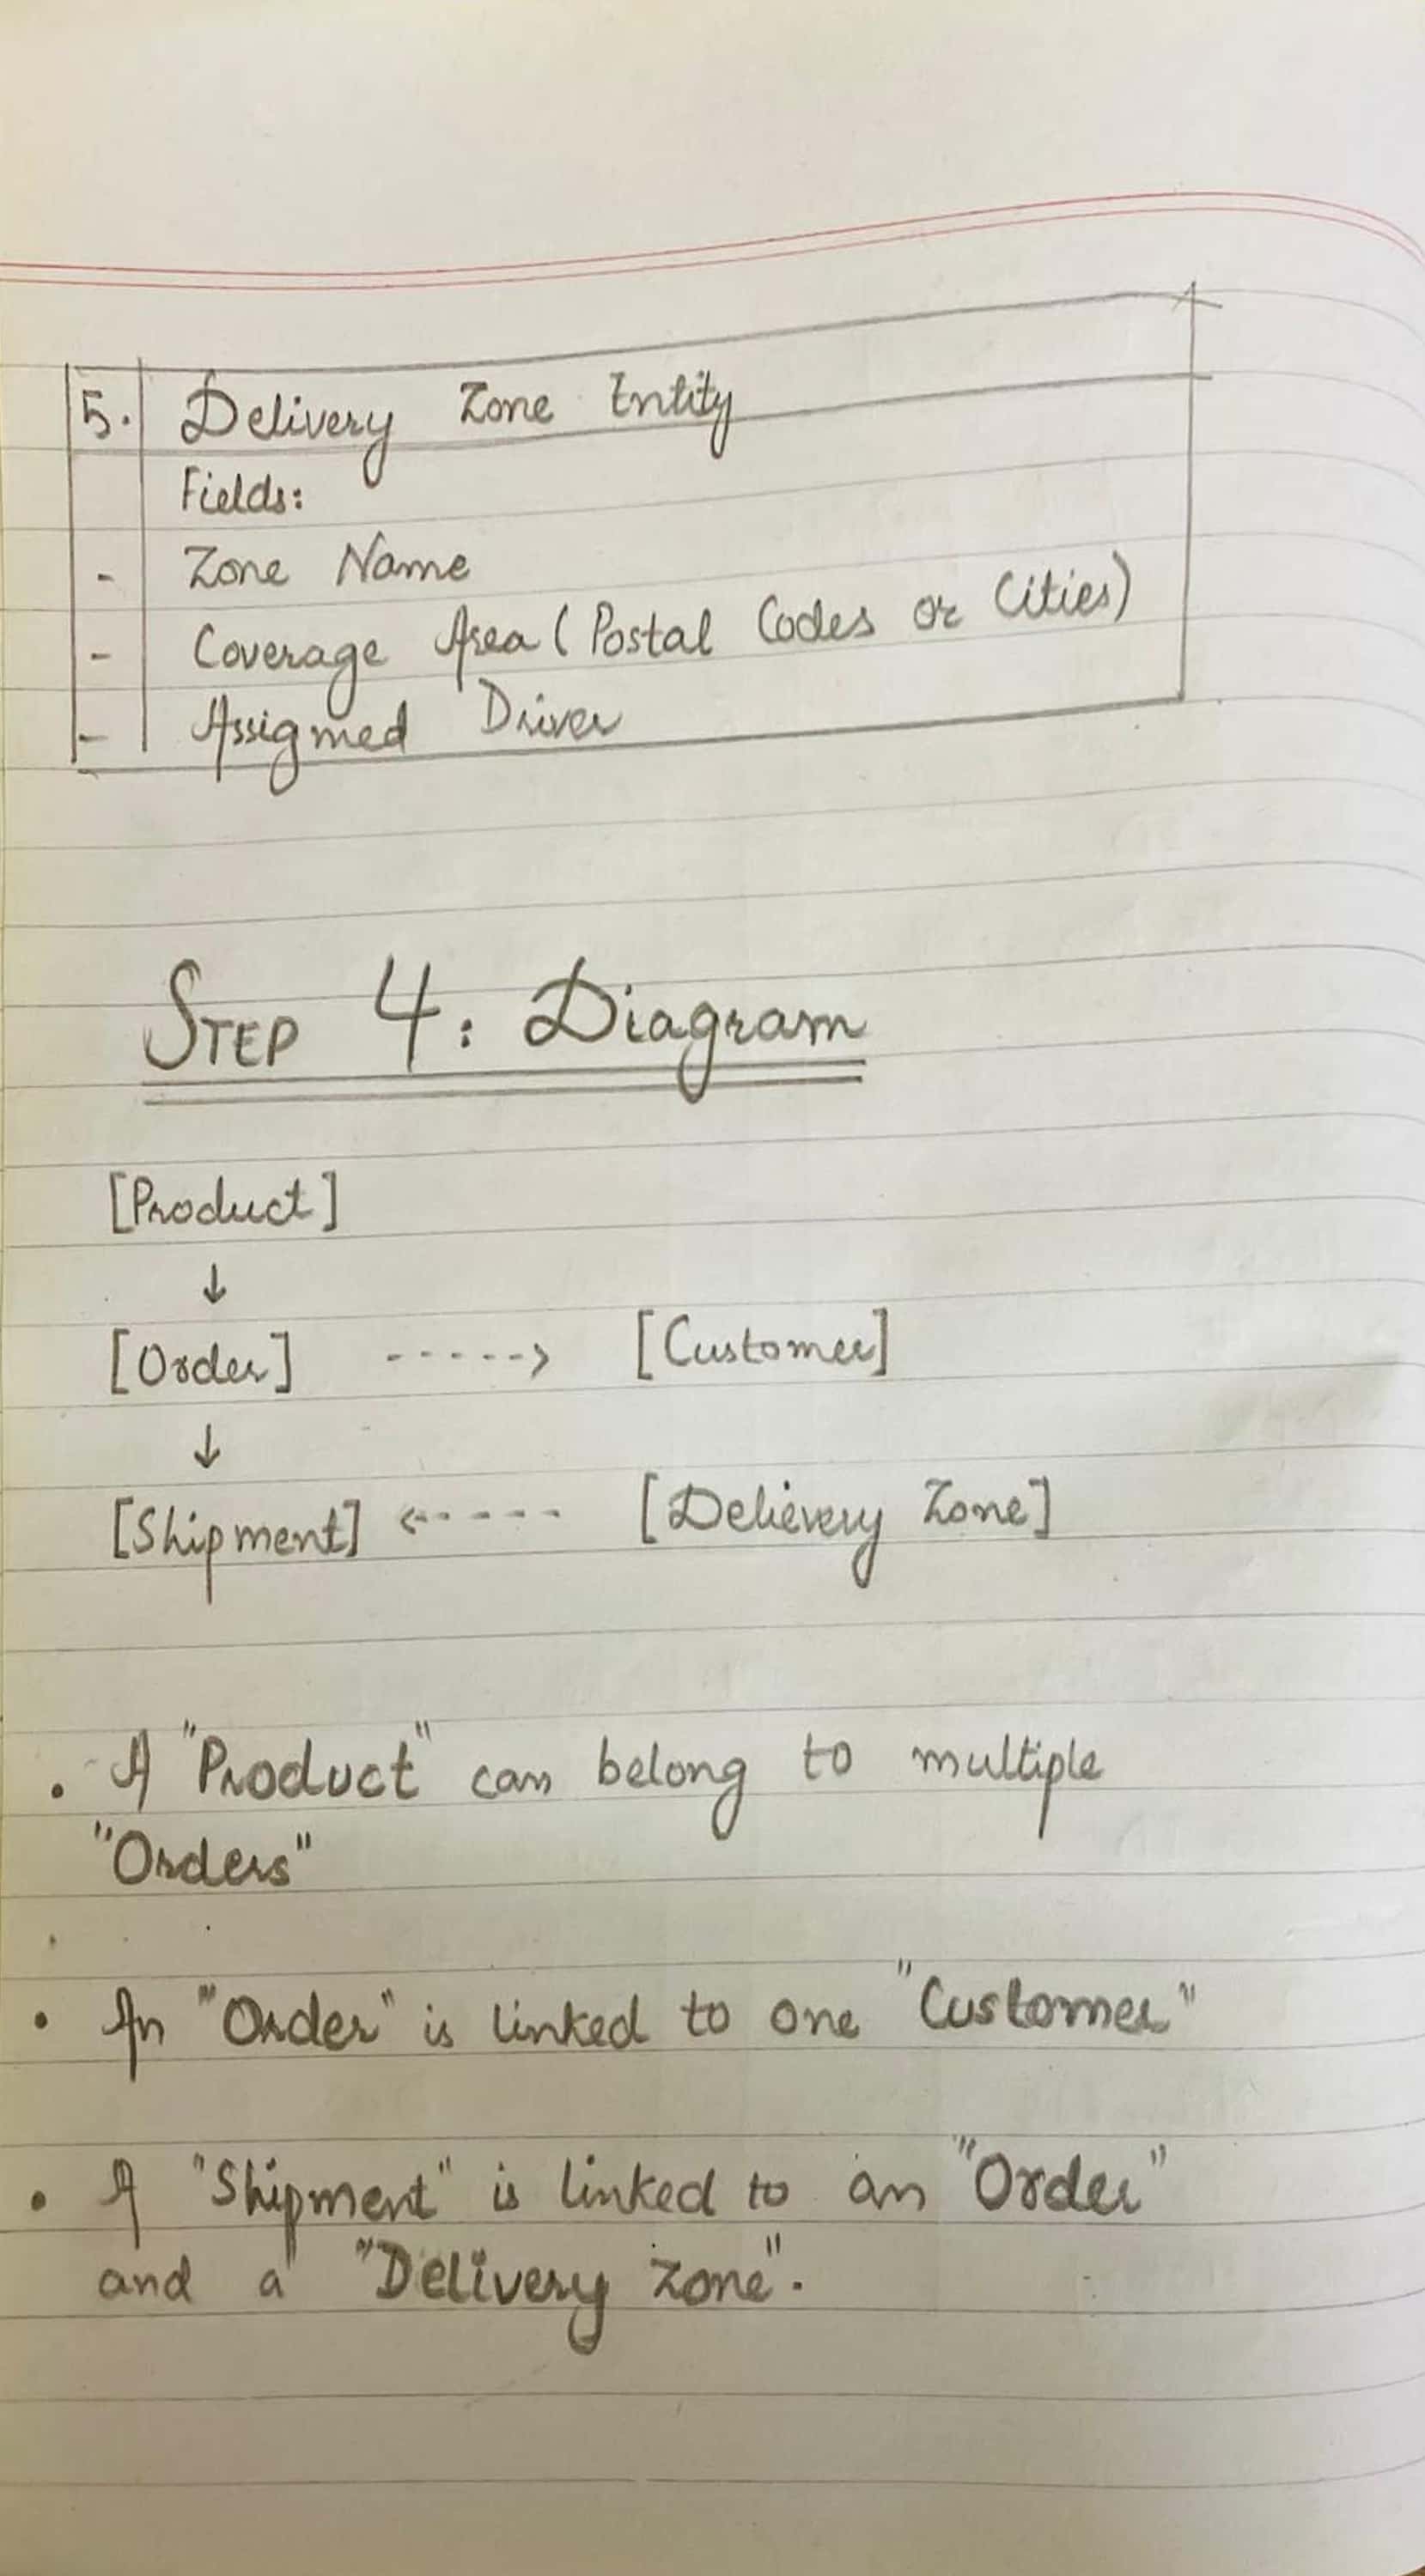 5. Delivery Zone Entity
Fields:
- Zone Name
- Coverage Area (Postal Codes or Cities)
- Assigmed Driver
STEP 4: Diagram
[Product]
↓
[Order] -----> [Customer]
↓
[Shipment] <----- [Delievery Zone]
• A "Product" can belong to multiple
"Orders"
• An "Order" is linked to one "Customer"
• A "Shipment" is linked to an "Order"
and a "Delivery Zone".